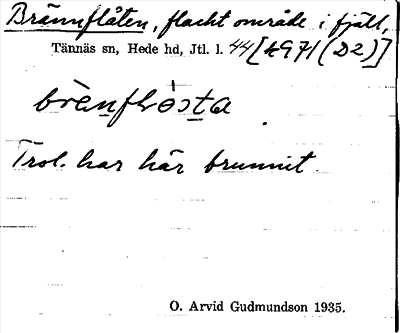 Brännflåten, flackt område i fjäll,
Tännäs sn, Hede hd, Jtl. l. 44 [4971 (D2)]
Trol. har här brunnit.
O. Arvid Gudmundson 1935.